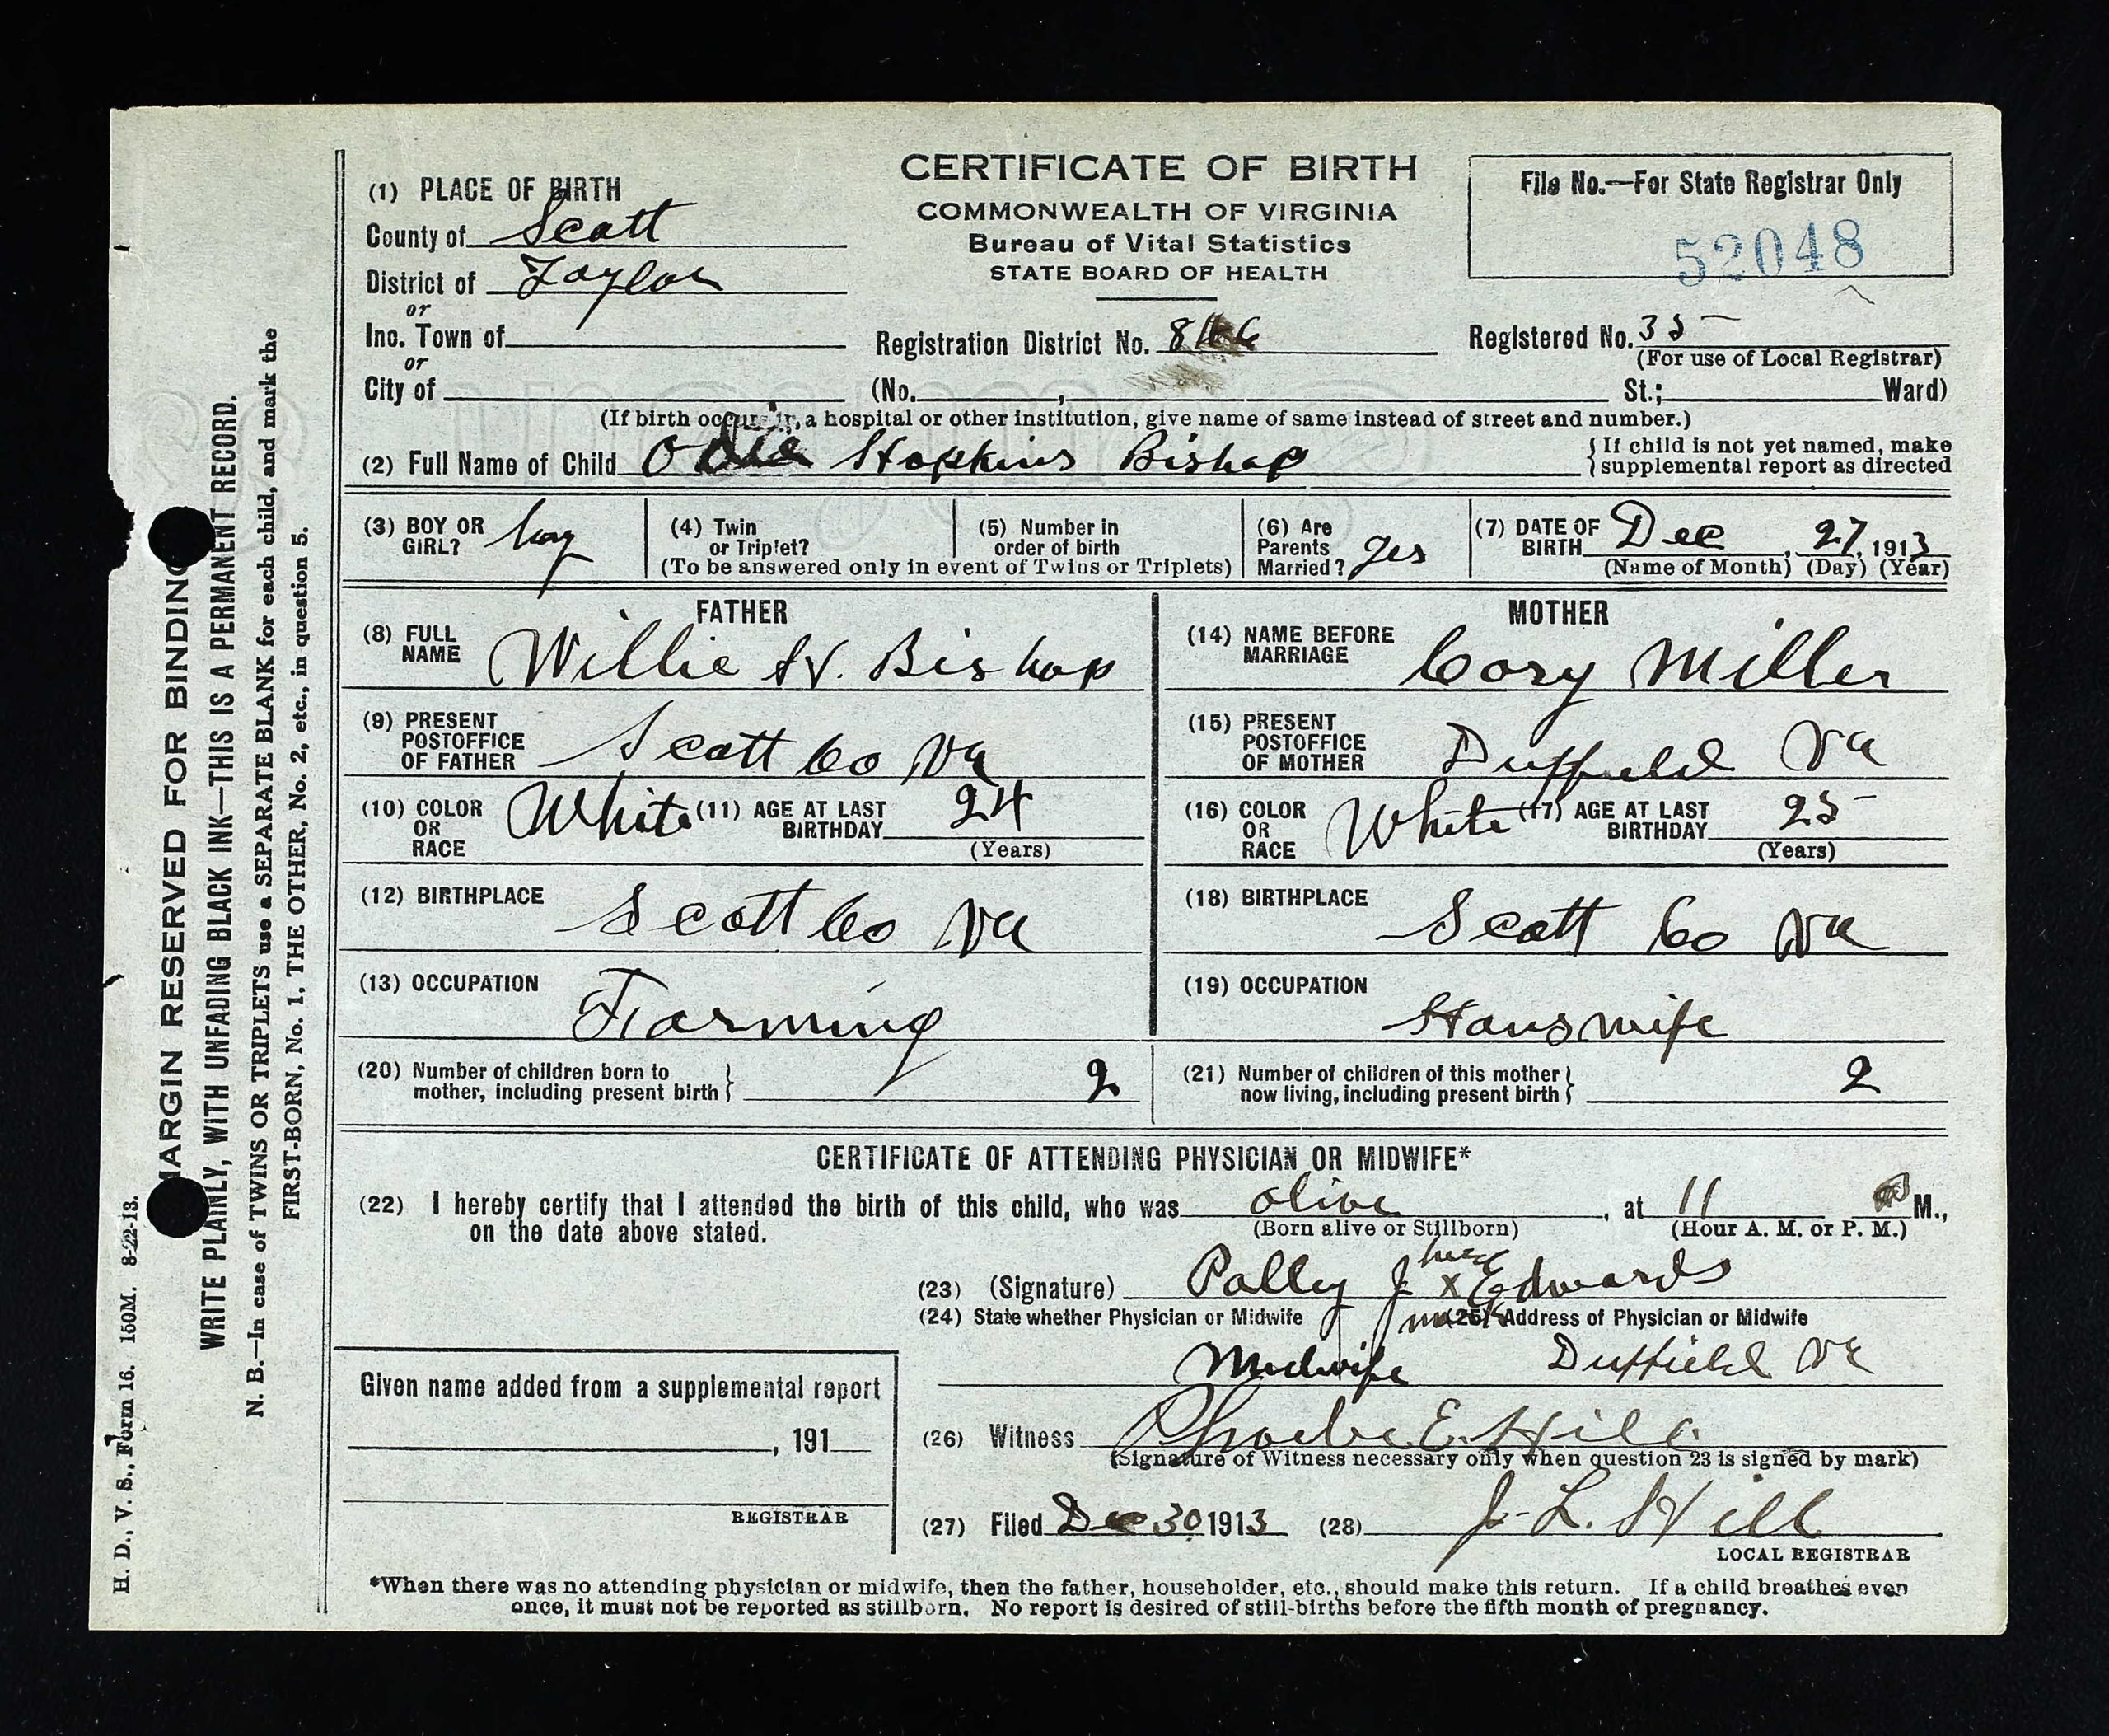 CERTIFICATE OF BIRTH
COMMONWEALTH OF VIRGINIA
Bureau of Vital Statistics
STATE BOARD OF HEALTH
File No.—For State Registrar Only
52048
(1) PLACE OF BIRTH
County of Scott
District of Taylor
or
Inc. Town of
or
City of
Registration District No.
Registered No. 35
(For use of Local Registrar)
(No. , St.; Ward)
(If birth occurs in a hospital or other institution, give name of same instead of street and number.)
(2) Full Name of Child Odie Hopkins Bishop
{If child is not yet named, make
supplemental report as directed
(3) BOY OR GIRL? boy
(4) Twin or Triplet?
(5) Number in order of birth
(To be answered only in event of Twins or Triplets)
(6) Are Parents Married? yes
(7) DATE OF BIRTH Dec, 27, 1913
(Name of Month) (Day) (Year)
FATHER
(8) FULL NAME Willie H. Bishop
(9) PRESENT POSTOFFICE OF FATHER Scott Co Va
(10) COLOR OR RACE White
(11) AGE AT LAST BIRTHDAY 24
(Years)
(12) BIRTHPLACE Scott Co Va
(13) OCCUPATION Farming
MOTHER
(14) NAME BEFORE MARRIAGE Cory Miller
(15) PRESENT POSTOFFICE OF MOTHER Duffield Va
(16) COLOR OR RACE White
(17) AGE AT LAST BIRTHDAY 25
(Years)
(18) BIRTHPLACE Scott Co Va
(19) OCCUPATION Hauswife
(20) Number of children born to
mother, including present birth} 2
(21) Number of children of this mother
now living, including present birth} 2
CERTIFICATE OF ATTENDING PHYSICIAN OR MIDWIFE*
(22) I hereby certify that I attended the birth of this child, who was alive, at 11 M.,
(Born alive or Stillborn) (Hour A. M. or P. M.)
on the date above stated.
her
(23) (Signature) Polley J x Edwards
mark
(24) State whether Physician or Midwife (25) Address of Physician or Midwife
Midwife Duffield Va
(26) Witness Phoebe E. Hill
(Signature of Witness necessary only when question 23 is signed by mark)
(27) Filed Dec 30 1913 (28) J. L. Hill
LOCAL REGISTRAR
Given name added from a supplemental report
, 191
REGISTRAR
*When there was no attending physician or midwife, then the father, householder, etc., should make this return. If a child breathes even
once, it must not be reported as stillborn. No report is desired of still-births before the fifth month of pregnancy.
MARGIN RESERVED FOR BINDING
WRITE PLAINLY, WITH UNFADING BLACK INK—THIS IS A PERMANENT RECORD.
N. B.—In case of TWINS OR TRIPLETS use a SEPARATE BLANK for each child, and mark the
FIRST-BORN, No. 1. THE OTHER, No. 2, etc., in question 5.
H. D., V. S., Form 16. 150M. 8-22-13.